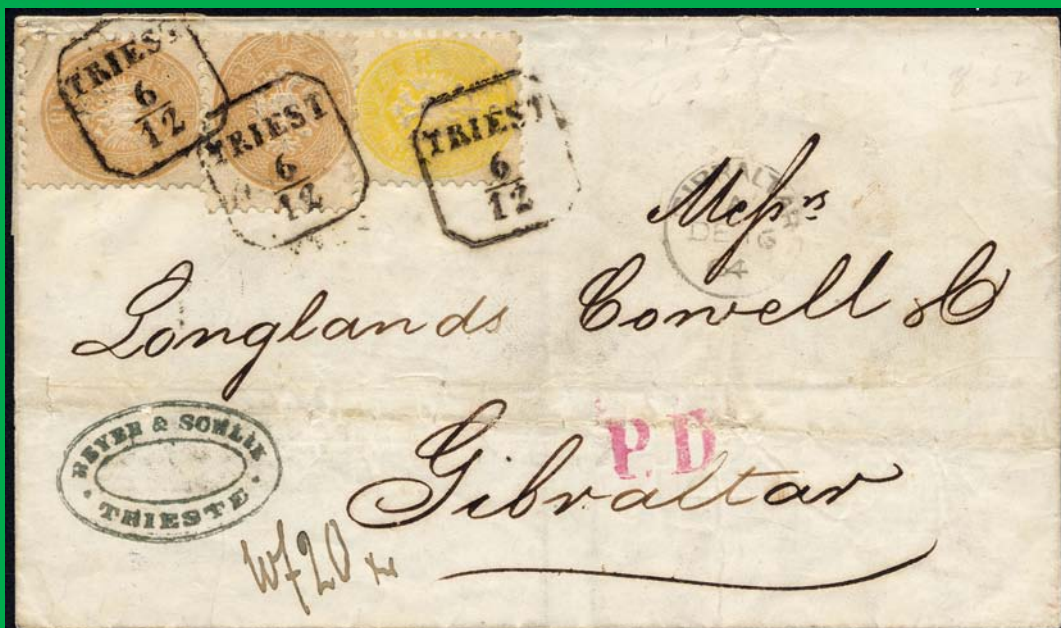 TRIEST
6
12
TRIEST
6
12
TRIEST
6
12
GIBRALTAR
A
DE 16
4
Messrs
Longlands Cowell & C
Gibraltar
P.D
BEYER & SCHLIK
TRIESTE
wf 20